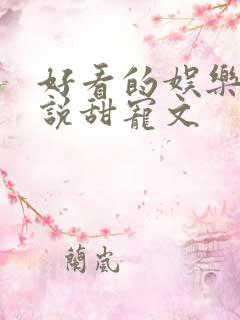 好看的娛樂
說甜寵文
蘭嵐